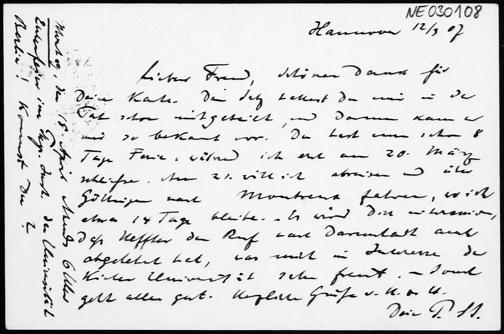 NE030108
Hannover 12/3 07
Lieber Freund, schönen Dank für
Deine Karte. Den hattest Du mir in der
Tat schon mitgeteilt, und darum kam er
mir so bekannt vor. Du hast nun schon 8
Tage Ferien, während ich erst am 20. März
schließe. Am 21. will ich abreisen und über
Göttingen nach Montreux fahren, wo ich
etwa 14 Tage bleibe. Es wird Dich interessieren,
daß Heffter den Ruf nach Darmstadt auch
abgelehnt hat, was mich im Interesse der
Kieler Universität sehr freut. Sonst
geht alles gut. Herzliche Grüße v. H. z. H.
Dein P. St.
Montag, den 15. April Abends 6 Uhr
Eulerfeier im Phys. Inst. der Universität
Berlin! Kommst Du?